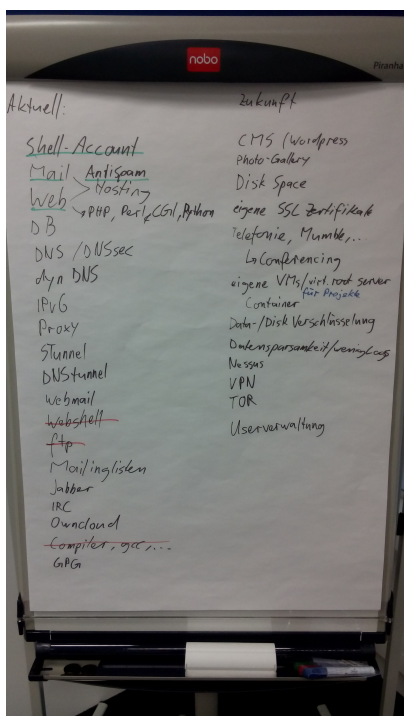 nobo
Piranha
Aktuell:
Shell-Account
Mail Antispam
> Hosting
Web → PHP, Perl, CGI, Python
DB
DNS / DNSsec
dyn DNS
IPv6
Proxy
STunnel
DNStunnel
Webmail
Webshell
ftp
Mailinglisten
Jabber
IRC
Owncloud
Compiler, gcc, ...
GPG
Zukunft
CMS / Wordpress
Photo-Gallery
Disk Space
eigene SSL Zertifikate
Telefonie, Mumble, ...
↳ Conferencing
eigene VMs/virt. root server
für Projekte
Container
Data-/Disk Verschlüsselung
Datensparsamkeit/wenig Logs
Nessus
VPN
TOR
Userverwaltung